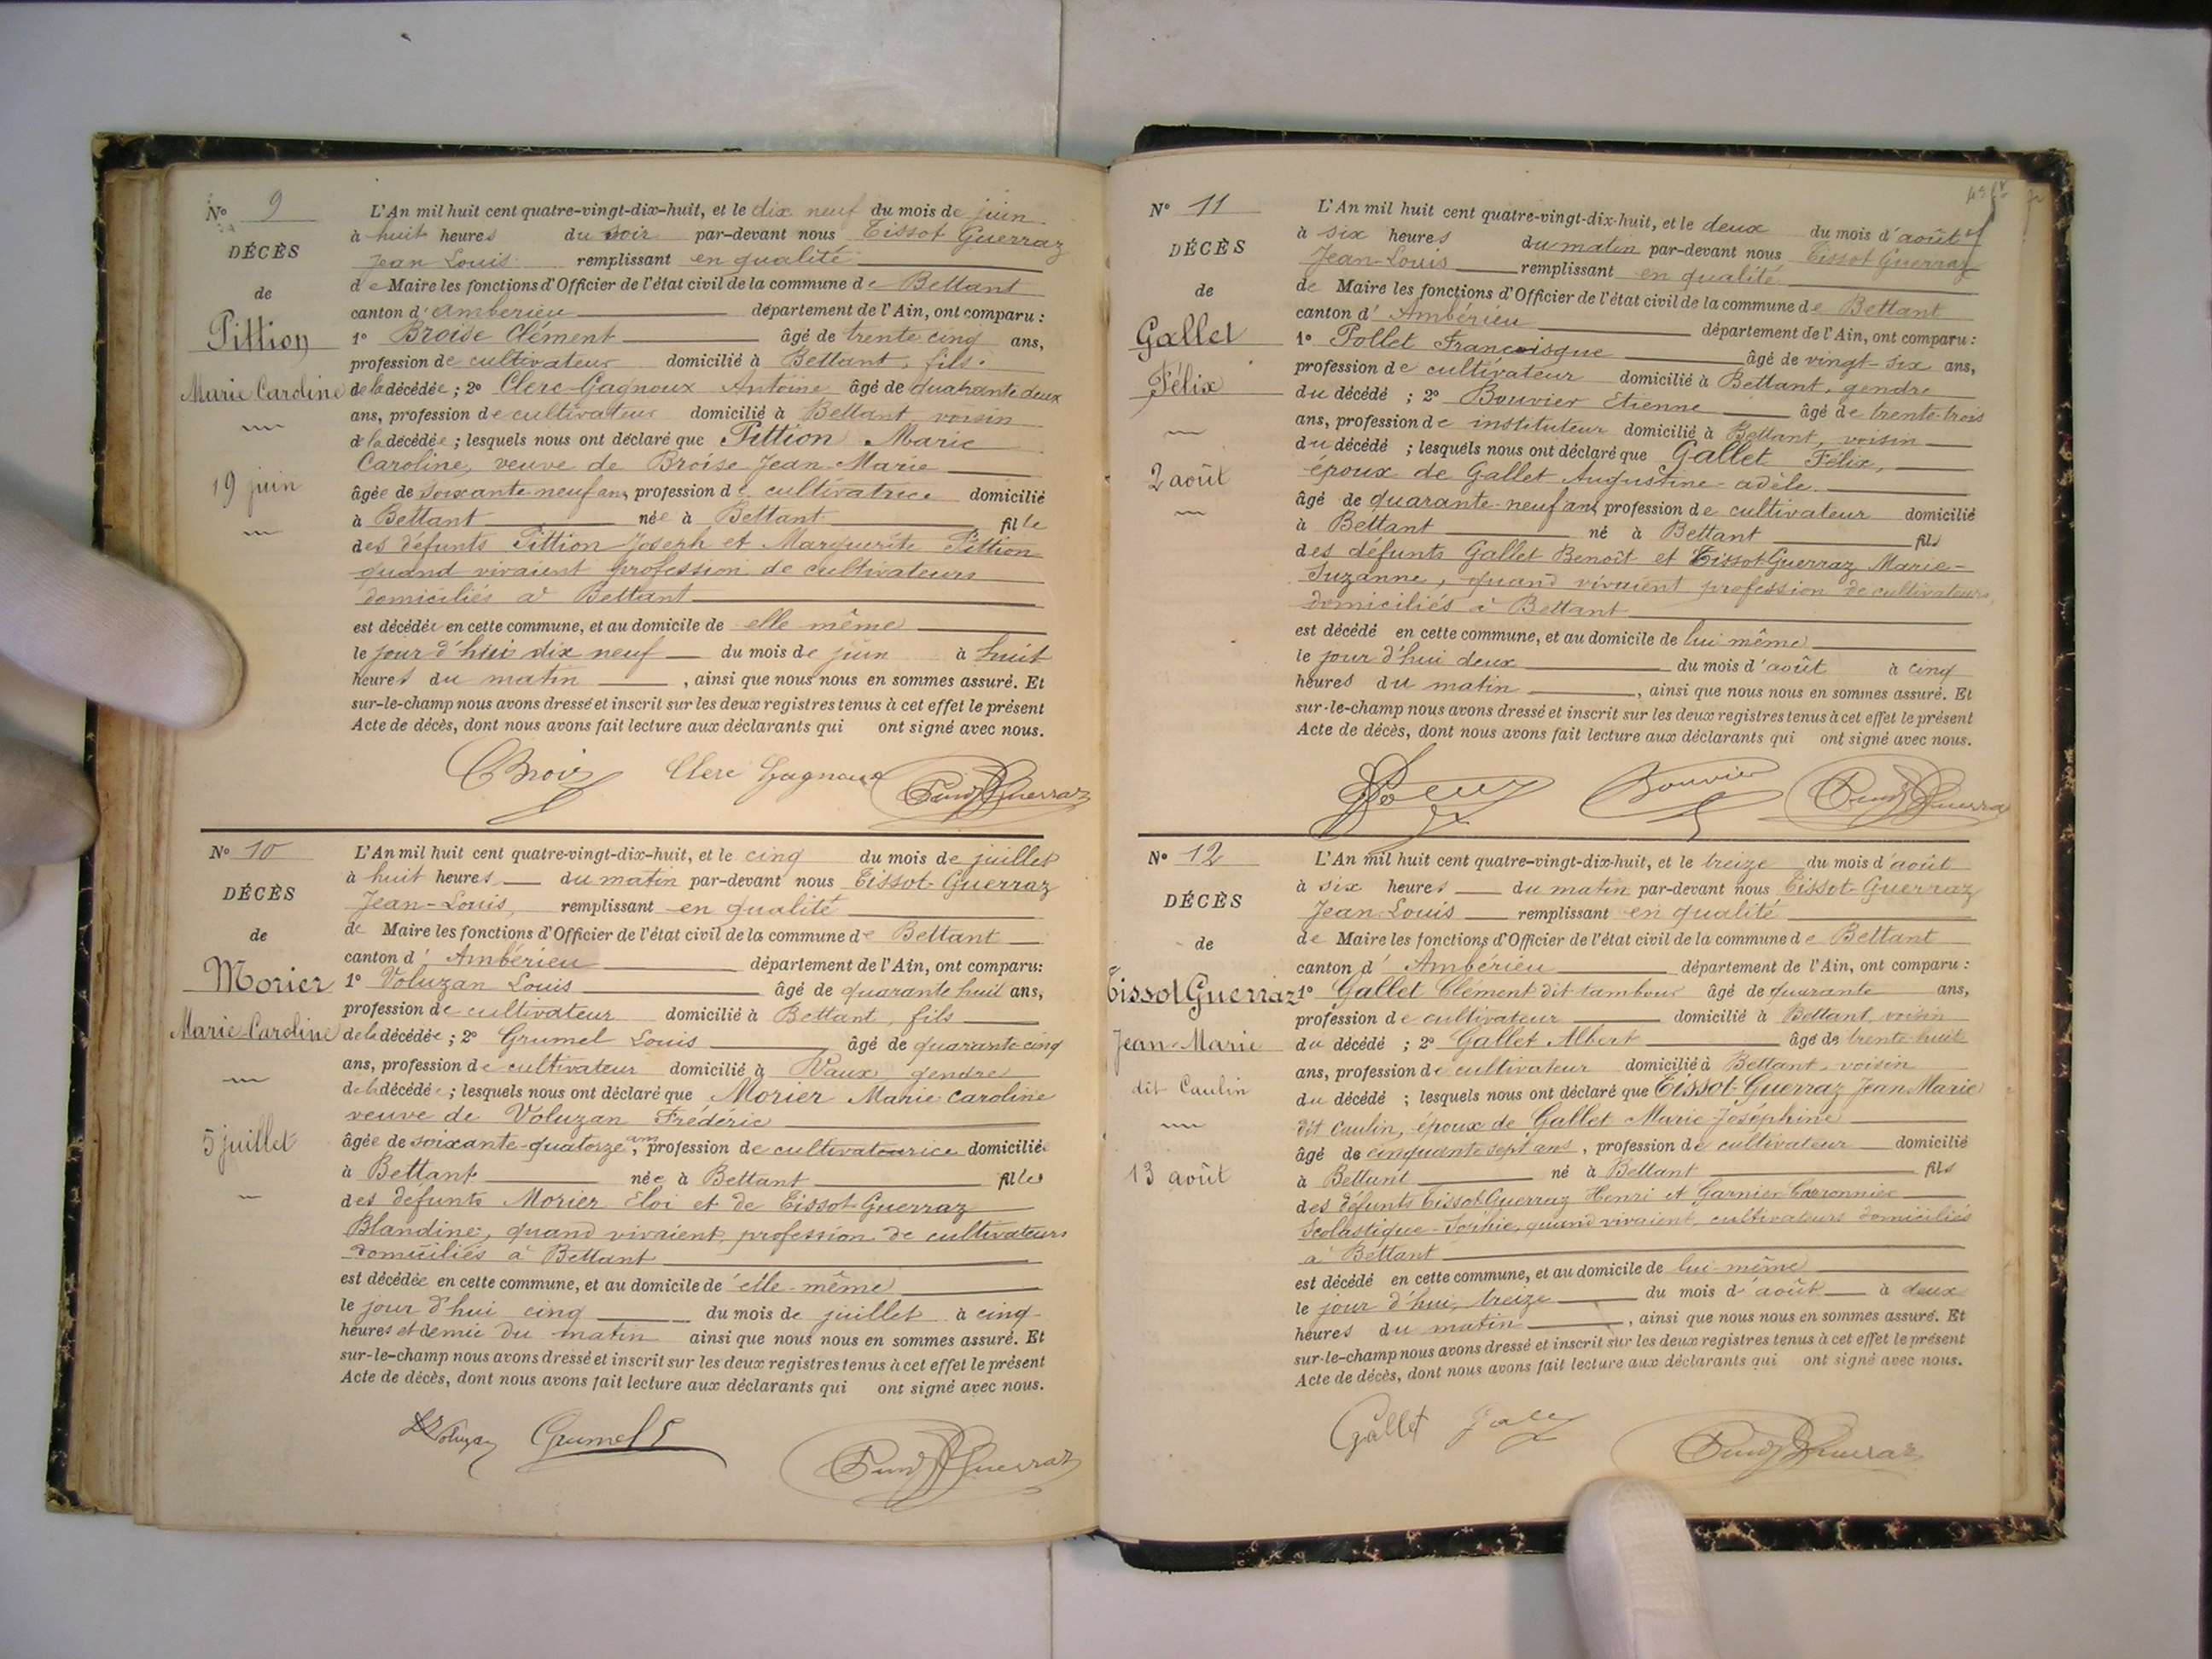 N° 9
DÉCÈS
de
Pittion
Marie Caroline
19 juin
L'An mil huit cent quatre-vingt-dix-huit, et le dix neuf du mois de juin
à huit heures du soir par-devant nous Tissot Guerraz
Jean Louis remplissant en qualité
de Maire les fonctions d'Officier de l'état civil de la commune de Bettant
canton d'Ambérieu département de l'Ain, ont comparu :
1° Broise Clément âgé de trente cinq ans,
profession de cultivateur domicilié à Bettant, fils
de la décédée ; 2° Clerc-Gagnoux Antoine âgé de quarante deux
ans, profession de cultivateur domicilié à Bettant voisin
de la décédée ; lesquels nous ont déclaré que Pittion Marie
Caroline, veuve de Broise Jean Marie
âgée de soixante neuf ans, profession de cultivatrice domicilié
à Bettant née à Bettant fille
des défunts Pittion Joseph et Marguerite Pittion
quand vivaient profession de cultivateurs
domiciliés à Bettant
est décédée en cette commune, et au domicile de elle même
le jour d'hui dix neuf du mois de juin à huit
heures du matin , ainsi que nous nous en sommes assuré. Et
sur-le-champ nous avons dressé et inscrit sur les deux registres tenus à cet effet le présent
Acte de décès, dont nous avons fait lecture aux déclarants qui ont signé avec nous.
CBroise Clerc Gagnoux Guerraz
N° 10
DÉCÈS
de
Morier
Marie Caroline
5 juillet
L'An mil huit cent quatre-vingt-dix-huit, et le cinq du mois de juillet
à huit heures du matin par-devant nous Tissot-Guerraz
Jean-Louis, remplissant en qualité
de Maire les fonctions d'Officier de l'état civil de la commune de Bettant
canton d'Ambérieu département de l'Ain, ont comparu:
1° Voluzan Louis âgé de quarante huit ans,
profession de cultivateur domicilié à Bettant, fils
de la décédée ; 2° Grumel Louis âgé de quarante cinq
ans, profession de cultivateur domicilié à Vaux gendre
de la décédée ; lesquels nous ont déclaré que Morier Marie Caroline
veuve de Voluzan Frédéric
âgée de soixante-quatorze ans, profession de cultivatrice domiciliée
à Bettant née à Bettant filles
des défunts Morier Eloi et de Tissot-Guerraz
Blandine, quand vivaient profession de cultivateurs
domiciliés à Bettant
est décédée en cette commune, et au domicile de elle-même
le jour d'hui cinq du mois de juillet à cinq
heures et demie du matin ainsi que nous nous en sommes assuré. Et
sur-le-champ nous avons dressé et inscrit sur les deux registres tenus à cet effet le présent
Acte de décès, dont nous avons fait lecture aux déclarants qui ont signé avec nous.
Voluzan Grumel Guerraz
N° 11
DÉCÈS
de
Gallet
Félix
2 août
L'An mil huit cent quatre-vingt-dix-huit, et le deux du mois d'août
à six heures du matin par-devant nous Tissot Guerraz
Jean-Louis remplissant en qualité
de Maire les fonctions d'Officier de l'état civil de la commune de Bettant
canton d'Ambérieu département de l'Ain, ont comparu :
1° Pollet Francisque âgé de vingt-six ans,
profession de cultivateur domicilié à Bettant, gendre
du décédé ; 2° Bouvier Etienne âgé de trente-trois
ans, profession de instituteur domicilié à Bettant, voisin
du décédé ; lesquels nous ont déclaré que Gallet Félix,
époux de Gallet Augustine-adèle
âgé de quarante-neuf ans, profession de cultivateur domicilié
à Bettant né à Bettant fils
des défunts Gallet Benoît et Tissot Guerraz Marie-
Suzanne, quand vivaient profession de cultivateurs,
domiciliés à Bettant
est décédé en cette commune, et au domicile de lui même
le jour d'hui deux du mois d'août à cinq
heures du matin , ainsi que nous nous en sommes assuré. Et
sur-le-champ nous avons dressé et inscrit sur les deux registres tenus à cet effet le présent
Acte de décès, dont nous avons fait lecture aux déclarants qui ont signé avec nous.
Bouvier Guerraz
N° 12
DÉCÈS
de
Tissot Guerraz
Jean-Marie
dit Caulin
13 août
L'An mil huit cent quatre-vingt-dix-huit, et le treize du mois d'août
à six heures du matin par-devant nous Tissot-Guerraz
Jean Louis remplissant en qualité
de Maire les fonctions d'Officier de l'état civil de la commune de Bettant
canton d'Ambérieu département de l'Ain, ont comparu :
1° Gallet Clément dit tambour âgé de quarante ans,
profession de cultivateur domicilié à Bettant, voisin
du décédé ; 2° Gallet Albert âgé de trente-huit
ans, profession de cultivateur domicilié à Bettant, voisin
du décédé ; lesquels nous ont déclaré que Tissot-Guerraz Jean Marie
dit Caulin, époux de Gallet Marie Joséphine
âgé de cinquante sept ans, profession de cultivateur domicilié
à Bettant né à Bettant fils
des défunts Tissot Guerraz Henri et Garnier-Carronnier
Scolastique-Sophie, quand vivaient, cultivateurs domiciliés
à Bettant
est décédé en cette commune, et au domicile de lui-même
le jour d'hui, treize du mois d'août à deux
heures du matin , ainsi que nous nous en sommes assuré. Et
sur-le-champ nous avons dressé et inscrit sur les deux registres tenus à cet effet le présent
Acte de décès, dont nous avons fait lecture aux déclarants qui ont signé avec nous.
Gallet Guerraz